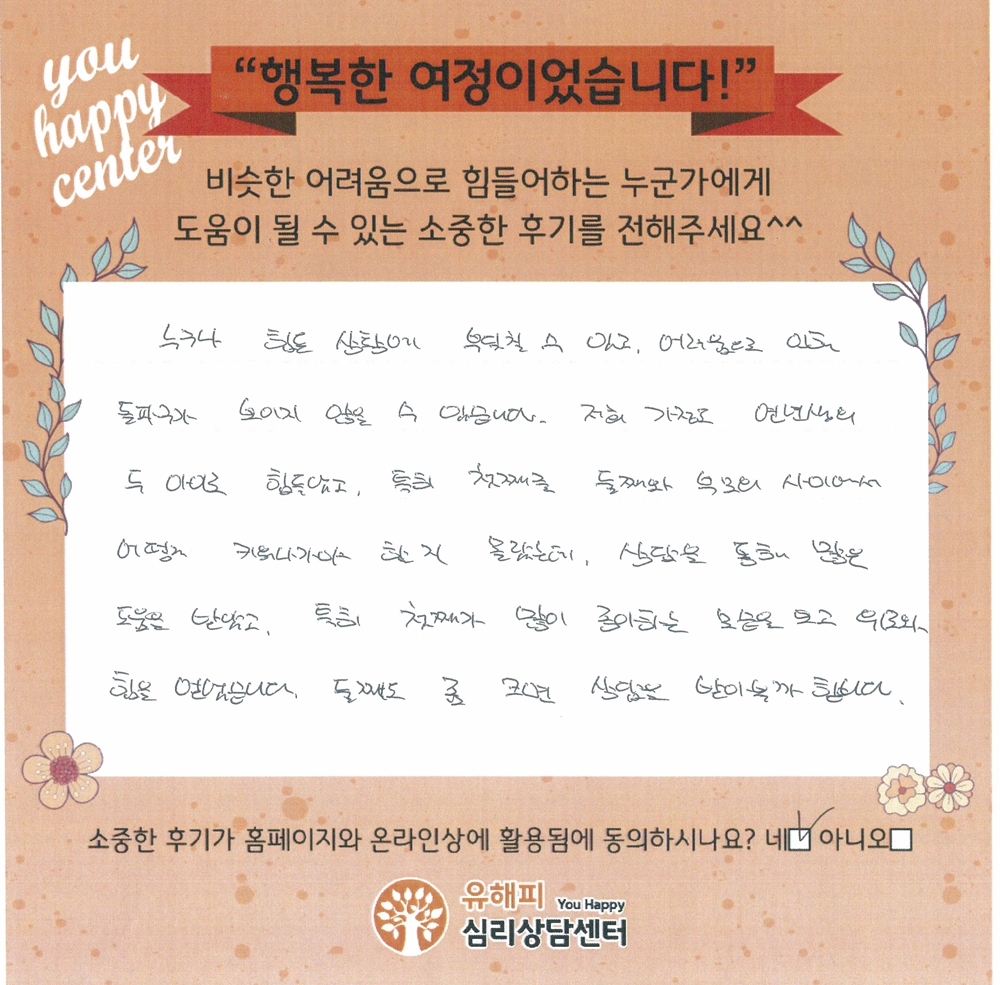 you
happy
center
“행복한 여정이었습니다!”
비슷한 어려움으로 힘들어하는 누군가에게
도움이 될 수 있는 소중한 후기를 전해주세요^^
누구나 힘든 상황에 부딪칠 수 있고, 어려움으로 인해
돌파구가 보이지 않을 수 있습니다. 저희 가정도 연년생의
두 아이로 힘들었고, 특히 첫째를 둘째와 부모의 사이에서
어떻게 키워나가야 할 지 몰랐는데, 상담을 통해 많은
도움을 받았고, 특히 첫째가 많이 좋아하는 모습을 보고 위로와
힘을 얻었습니다. 둘째도 좀 크면 상담을 받아볼까 합니다.
소중한 후기가 홈페이지와 온라인상에 활용됨에 동의하시나요? 네 아니오
유해피 You Happy
심리상담센터